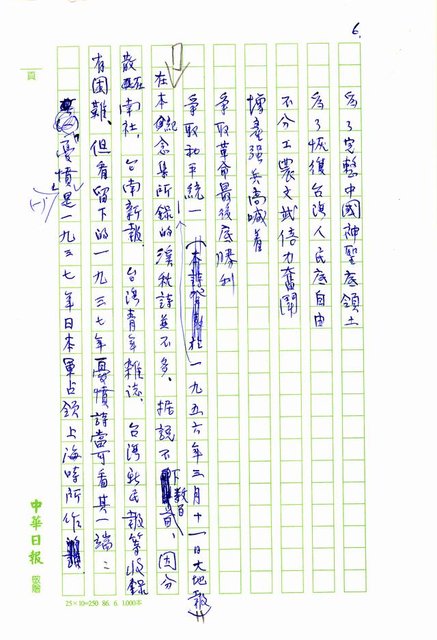 6.
為了完整中國神聖底領土
為了恢復台灣人民底自由
不分工農文武倍力奮鬪
增產強兵高喊着
爭取革命最後底勝利
爭取和平統一
一九五六年三月十一日大地報)
在本紀念集所錄的漢秋詩並不多、据說不下數百首、因分
散在南社、台南新報、台灣青年雜誌、台灣新民報等收錄
有困難、但看留下的一九三七年憂憤詩當可看其一端:
(一)憂憤是一九三七年日本軍占領上海時所作
頁
中華日報
敬贈
25×10=250 86. 6. 1,000本